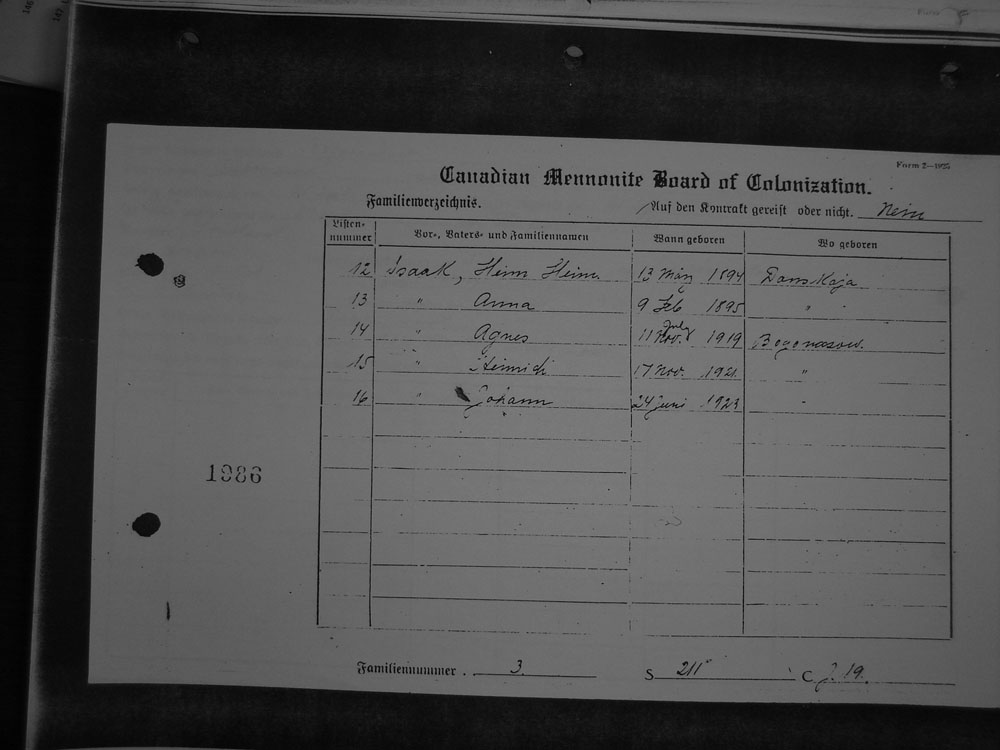 Form 2—1925
Canadian Mennonite Board of Colonization.
Familienverzeichnis.
Auf den Kontrakt gereist oder nicht. Nein
Listen-nummer Vor-, Vaters- und Familiennamen Wann geboren Wo geboren
12 Isaak, Heinr Heinr 13 März 1894 Danskaja
13 " Anna 9 Feb 1895 "
July
14 " Agnes 11 Nov. 1919 Bogomasow.
15 " Heinrich 17 Nov. 1921 "
16 " Johann 24 Juni 1923 "
1986
Familiennummer . 3. S 211 C 19.